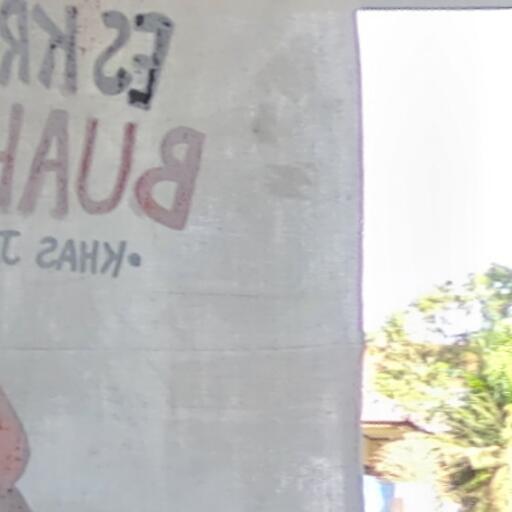 ES KR
BUAH
• KHAS J